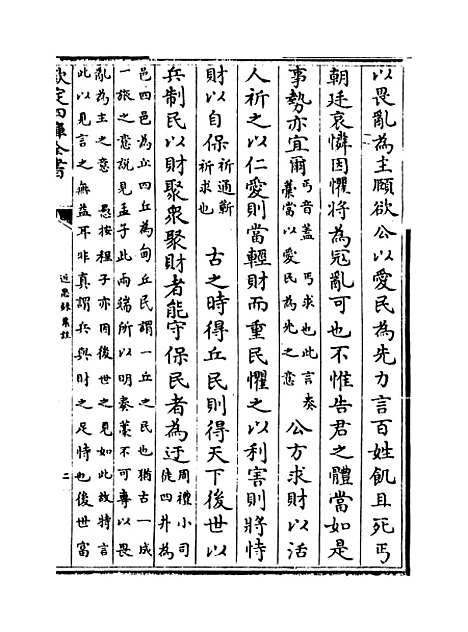 以畏亂為主頤欲公以愛民為先力言百姓飢且死丐
朝廷哀憐因懼將為冦亂可也不惟告君之體當如是
事勢亦宜爾丐音蓋 丐求也此言奏藁當以愛民為先之意 公方求財以活
人祈之以仁愛則當輕財而重民懼之以利害則將恃
財以自保祈通蘄祈求也 古之時得丘民則得天下後世以
兵制民以財聚衆聚財者能守保民者為迂周禮小司徒四井為
邑四邑為丘四丘為甸丘民謂一丘之民也猶古一成
一旅之意說見孟子此兩端所以明奏藁不可專以畏
亂為主之意 愚按程子亦因後世之見如此故特言
此以見言之無益耳非真謂兵與財之足恃也後世富
欽定四庫全書
近思錄集註
二